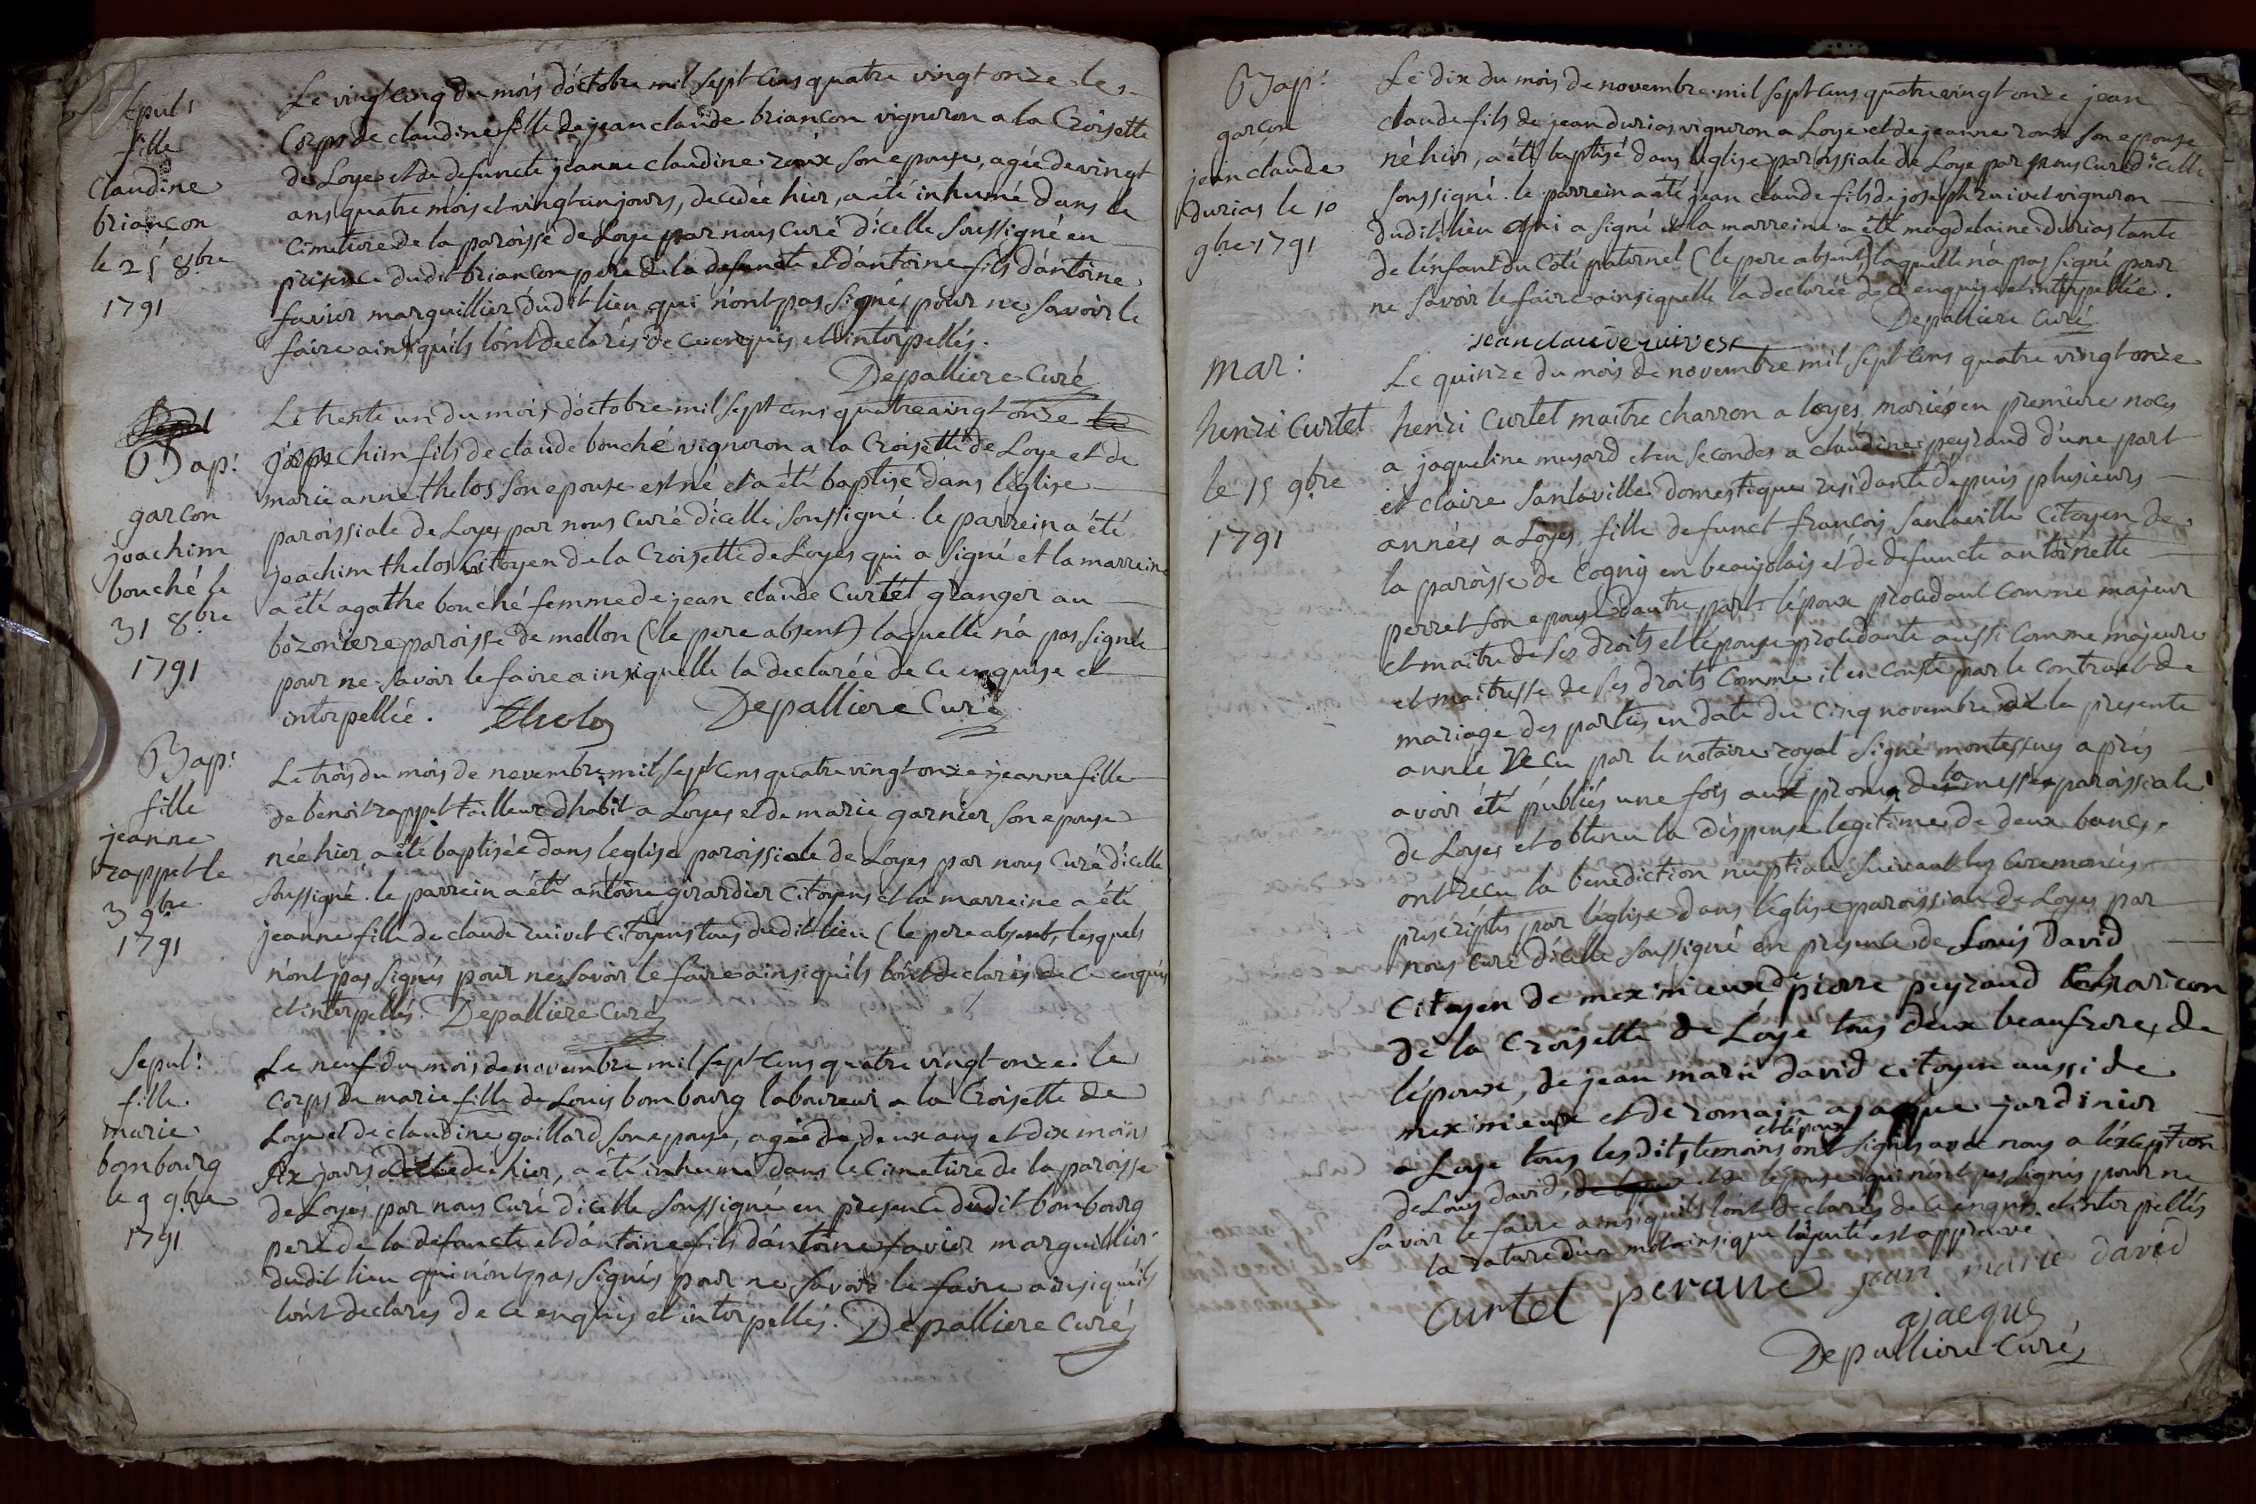 Sepul:
fille
Claudine
briançon
le 25 8bre
1791
Le vingt cinq du mois d'octobre mil sept cens quatre vingt onze le
Corps de claudine fille de jean claude briancon vigneron a la Croisette
de Loyes et de defuncte jeanne claudine roux son epouse, agée de vingt
ans quatre mois et vingt un jours, decedée hier, a été inhumé dans le
Cimetiere de la paroisse de Loye par nous Curé d'icelle Soussigné en
presence dudit briancon pere de la defuncte et d'antoine fils d'antoine
favier marguillier dudit lieu qui n'ont pas Signés pour ne Savoir le
faire ainsi qu'ils l'ont declarés de ce enquis et interpellés.
Depalliere Curé
Sepul
Bap:
garcon
joachim
bouché le
31 8bre
1791
Le trente un du mois d'octobre mil sept cens quatre vingt onze le
joachim fils de claude bouché vigneron a la Croisette de Loye et de
marie anne thelos Son epouse est né et a été baptisé dans l'église
paroissiale de Loyes par nous Curé d'icelle Soussigné. le parrein a été
joachim thelos Citoyen de la Croisette de Loyes qui a signé et la marreine
a été agathe bouché femme de jean claude Curtet granger au
bozoniere paroisse de mollon (le pere absent) laquelle n'a pas Signée
pour ne Savoir le faire ainsi quelle la declarée de ce enquise et
interpellée. Thelos Depalliere Curé
Bap:
fille
jeanne
rappet le
3 9bre
1791
Le trois du mois de novembre mil sept cens quatre vingt onze jeanne fille
de benoit rappet tailleur d'habit a Loyes et de marie garnier Son epouse
née hier, a été baptisée dans leglise paroissiale de Loyes par nous Curé d'icelle
Soussigné. le parrein a été antoine girardier Citoyens et la marreine a été
jeanne fille de claude ruivet Citoyens tous dudit lieu (le pere absent, lesquels
n'ont pas Signés pour ne Savoir le faire ainsi qu'ils l'ont declarés de ce enquis
et interpellés. Depalliere Curé
Sepul:
fille
marie
bombourg
le 9 9bre
1791
Le neuf du mois de novembre mil Sept Cens quatre vingt onze. le
Corps de marie fille de Louis bombourg laboureur a la Croisette de
Loye et de claudine gaillard Son epouse, agée de deux ans et dix mois
Six jours decedée hier, a été inhumé dans le Cimetiere de la paroisse
de Loyes par nous Curé d'icelle Soussigné en presence dudit bombourg
pere de la defuncte et d'antoine fils d'antoine favier marguillier
dudit lieu qui n'ont pas Signés pour ne Savoir le faire ainsi qu'ils
l'ont declarés de ce enquis et interpellés. Depalliere Curé
Bap:
garcon
jean claude
durias le 10
9bre 1791
Le dix du mois de novembre mil sept cens quatre vingt onze jean
claude fils de jean durias vigneron a Loye et de jeanne roux Son epouse
né hier, a été baptisé dans l'eglise paroissiale de Loye par nous Curé d'icelle
Soussigné. le parrein a été jean claude fils de joseph ruivet vigneron
dudit lieu qui a signé et la marreine a été magdelaine durias tante
de l'enfant du Coté paternel (le pere absent) laquelle n'a pas Signé pour
ne Savoir le faire ainsi quelle la declarée de ce enquise et interpellée.
Depalliere Curé
jean claude ruivest
mar:
henri Curtet
le 15 9bre
1791
Le quinze du mois de novembre mil Sept Cens quatre vingt onze
henri Curtet maitre charron a loyes, mariés en premiere noces
a jaqueline musard et en Secondes a claudine peyraud d'une part
et claire Sanlaville domestique residante depuis plusieurs
années a Loyes, fille defunct françois Sanlaville Citoyen de
la paroisse de Cogny en beaujolais et de defuncte antoinette
perret Son epouse d'autre part, l'epoux procedant Comme majeur
et maitre de Ses droits et l'epouse procedante aussi Comme majeure
et maitresse de Ses droits Comme il en conste par le contract de
mariage des parties en date du Cinq novembre de la presente
année recu par le notaire royal Signé montessuy après
avoir été publiés une fois aux prones de la messe paroissiale
de Loyes et obtenu la dispense legitime de deux bancs,
ont recu la benediction nuptiale Suivant les Ceremonies
prescriptes par l'église dans l'église paroissiale de Loyes par
nous Curé d'icelle Soussigné en presence de Louis David
Citoyen de meximieux de pierre peyraud
de la Croisette de Loye tous deux beaufreres de
l'epoux, de jean marie david citoyen aussi de
meximieux et de romain ajaque jardinier
et l'epoux
a Loye tous lesdits temoins ont Signés avec nous a l'exception
de Louis david, de l'epoux et de l'epouse qui n'ont pas Signés pour ne
Savoir le faire ainsi qu'ils l'ont declarés de ce enquis et interpellés
la rature d'un mot ainsi que l'ajouté est approuvé
Curtet peraud jean marie david
ajacque
Depalliere Curé